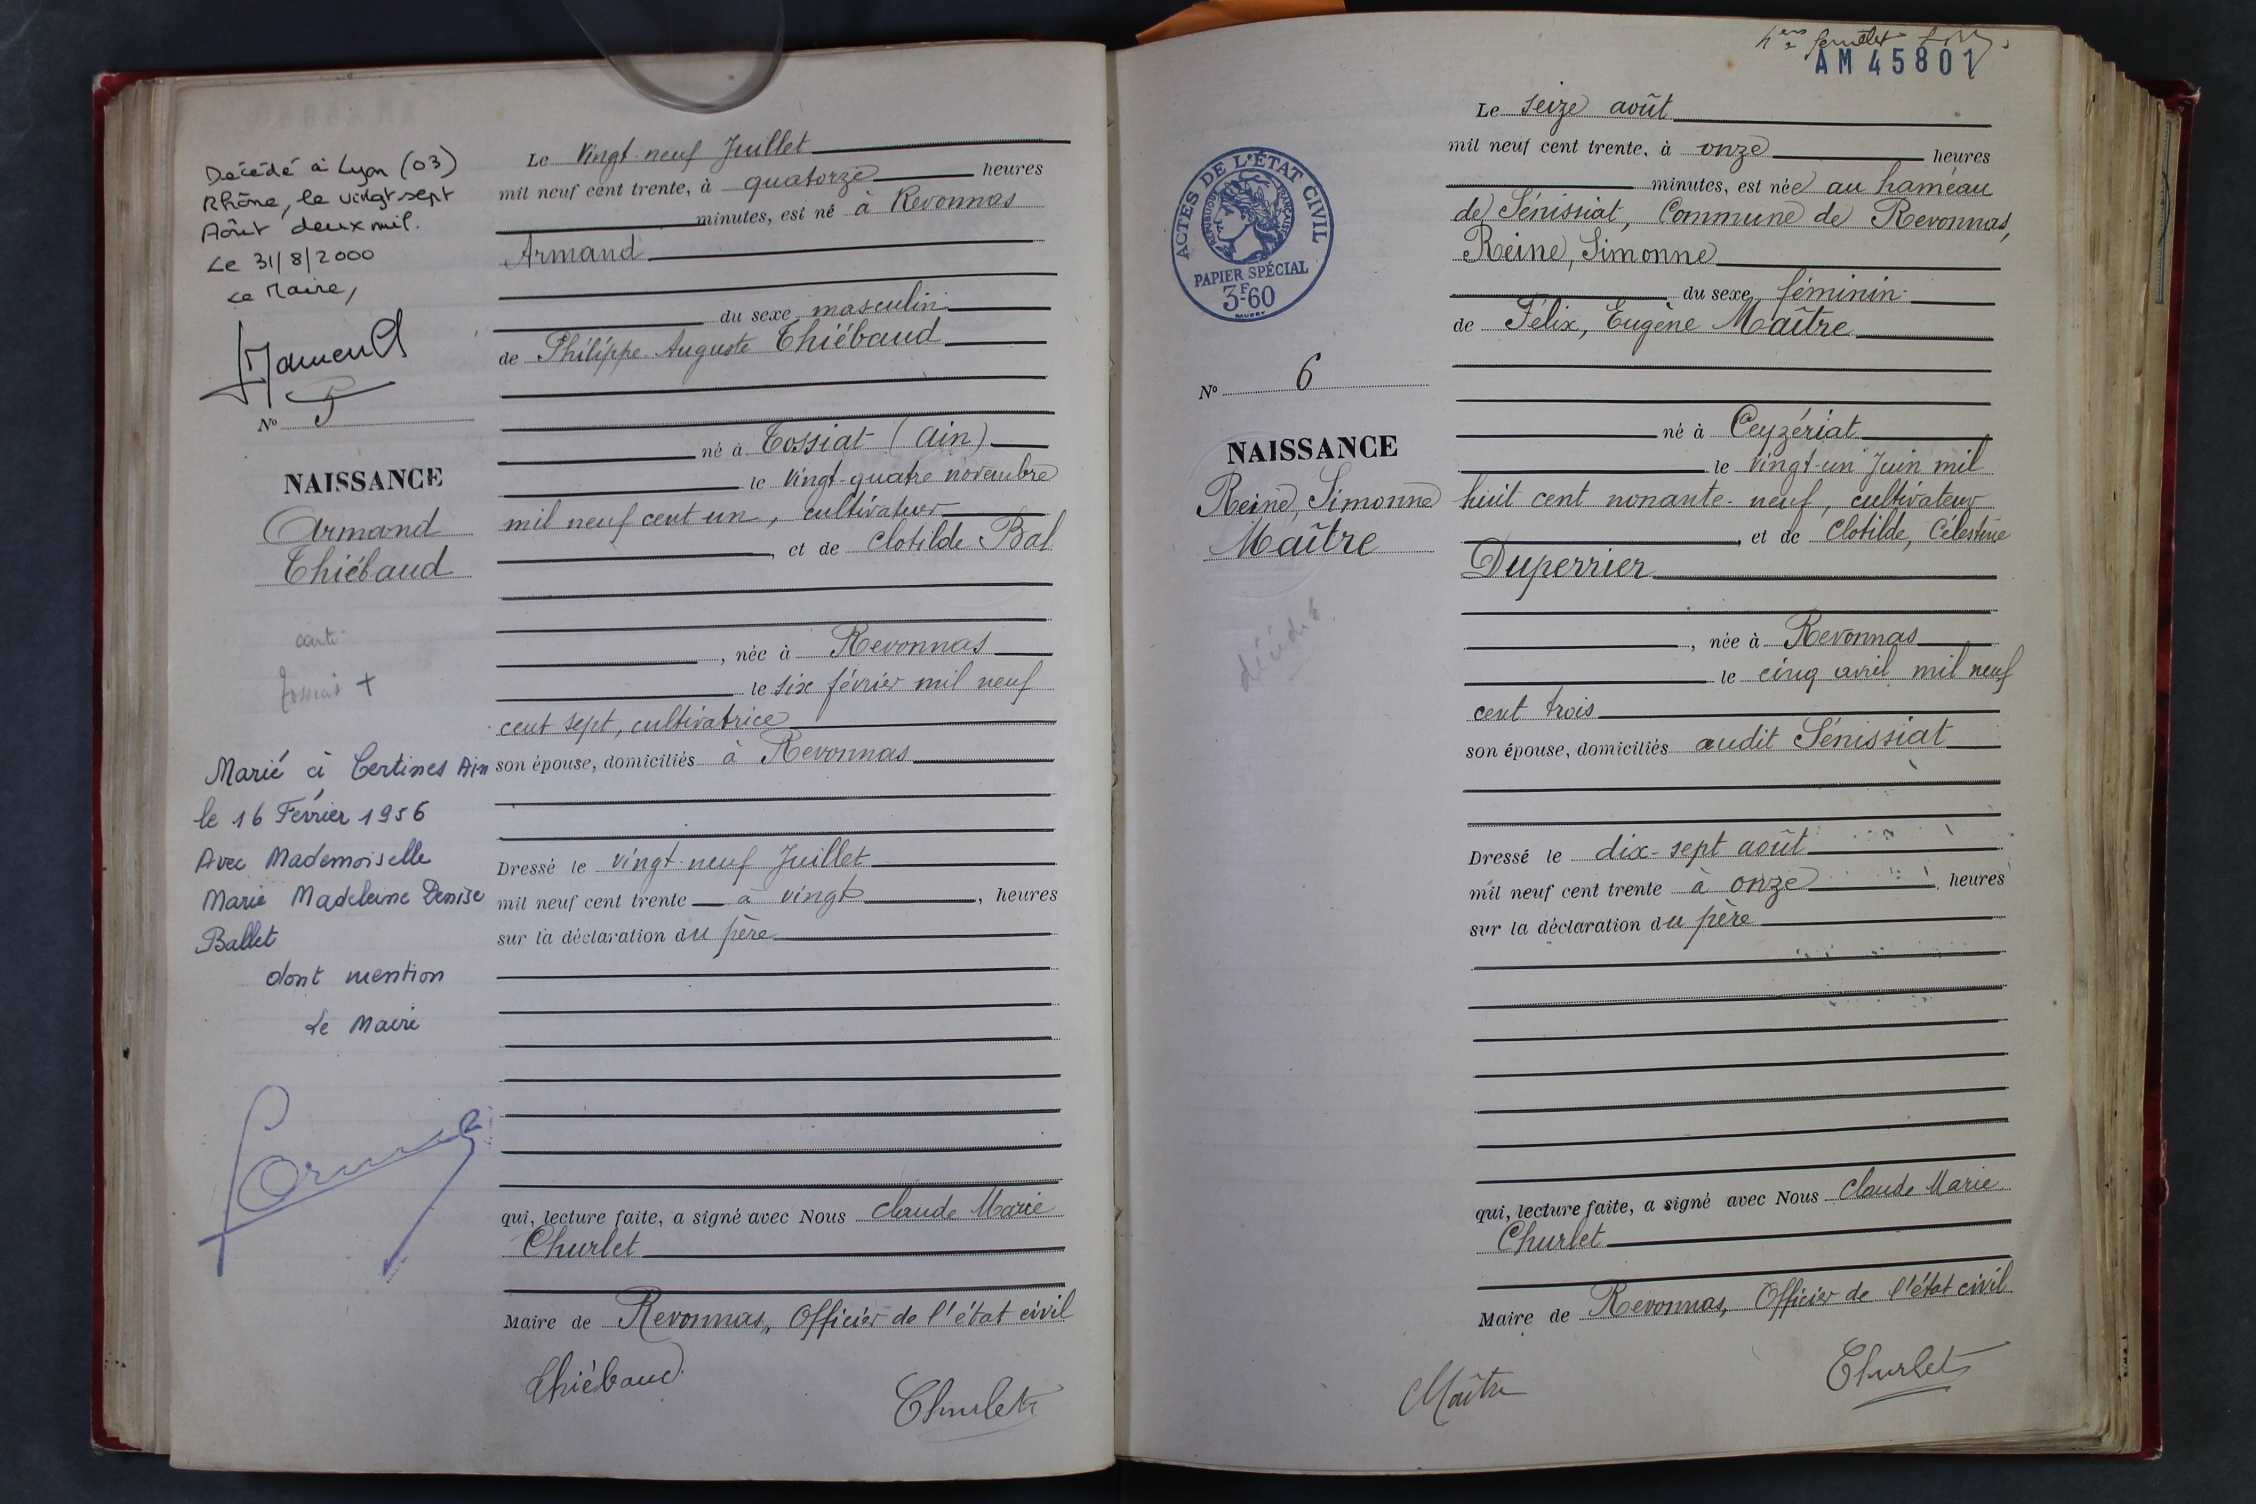 Décédé à Lyon (03)
Rhône, le vingt sept
Août deux mil.
Le 31/8/2000
Le Maire,
N° 5
NAISSANCE
Armand
Thiébaud
Marié à Certines Ain
le 16 Février 1956
Avec Mademoiselle
Marie Madeleine Denise
Ballet
dont mention
Le Maire
Le vingt-neuf Juillet
mil neuf cent trente, à quatorze heures
minutes, est né à Revonnas
Armand
du sexe masculin
de Philippe Auguste Thiébaud
né à Tossiat (Ain)
le vingt-quatre novembre
mil neuf cent un, cultivateur
, et de Clotilde Bal
, née à Revonnas
le six février mil neuf
cent sept, cultivatrice
son épouse, domiciliés à Revonnas
Dressé le vingt-neuf Juillet
mil neuf cent trente à vingt , heures
sur la déclaration du père
qui, lecture faite, a signé avec Nous Claude Marie
Churlet
Maire de Revonnas, Officier de l'état civil
Thiébaud
Churlet
AM 45801
ACTES DE L'ÉTAT CIVIL
RÉPUBLIQUE FRANÇAISE
PAPIER SPÉCIAL
3F60
N° 6
NAISSANCE
Reine, Simonne
Maître
décédée
Le seize août
mil neuf cent trente, à onze heures
minutes, est née au hameau
de Sénissiat, Commune de Revonnas,
Reine, Simonne
du sexe féminin
de Félix, Eugène Maître
né à Ceyzériat
le vingt-un Juin mil
huit cent nonante-neuf, cultivateur
, et de Clotilde, Célestine
Duperrier
, née à Revonnas
le cinq avril mil neuf
cent trois
son épouse, domiciliés audit Sénissiat
Dressé le dix-sept août
mil neuf cent trente à onze , heures
sur la déclaration du père
qui, lecture faite, a signé avec Nous Claude Marie
Churlet
Maire de Revonnas, Officier de l'état civil
Maître
Churlet